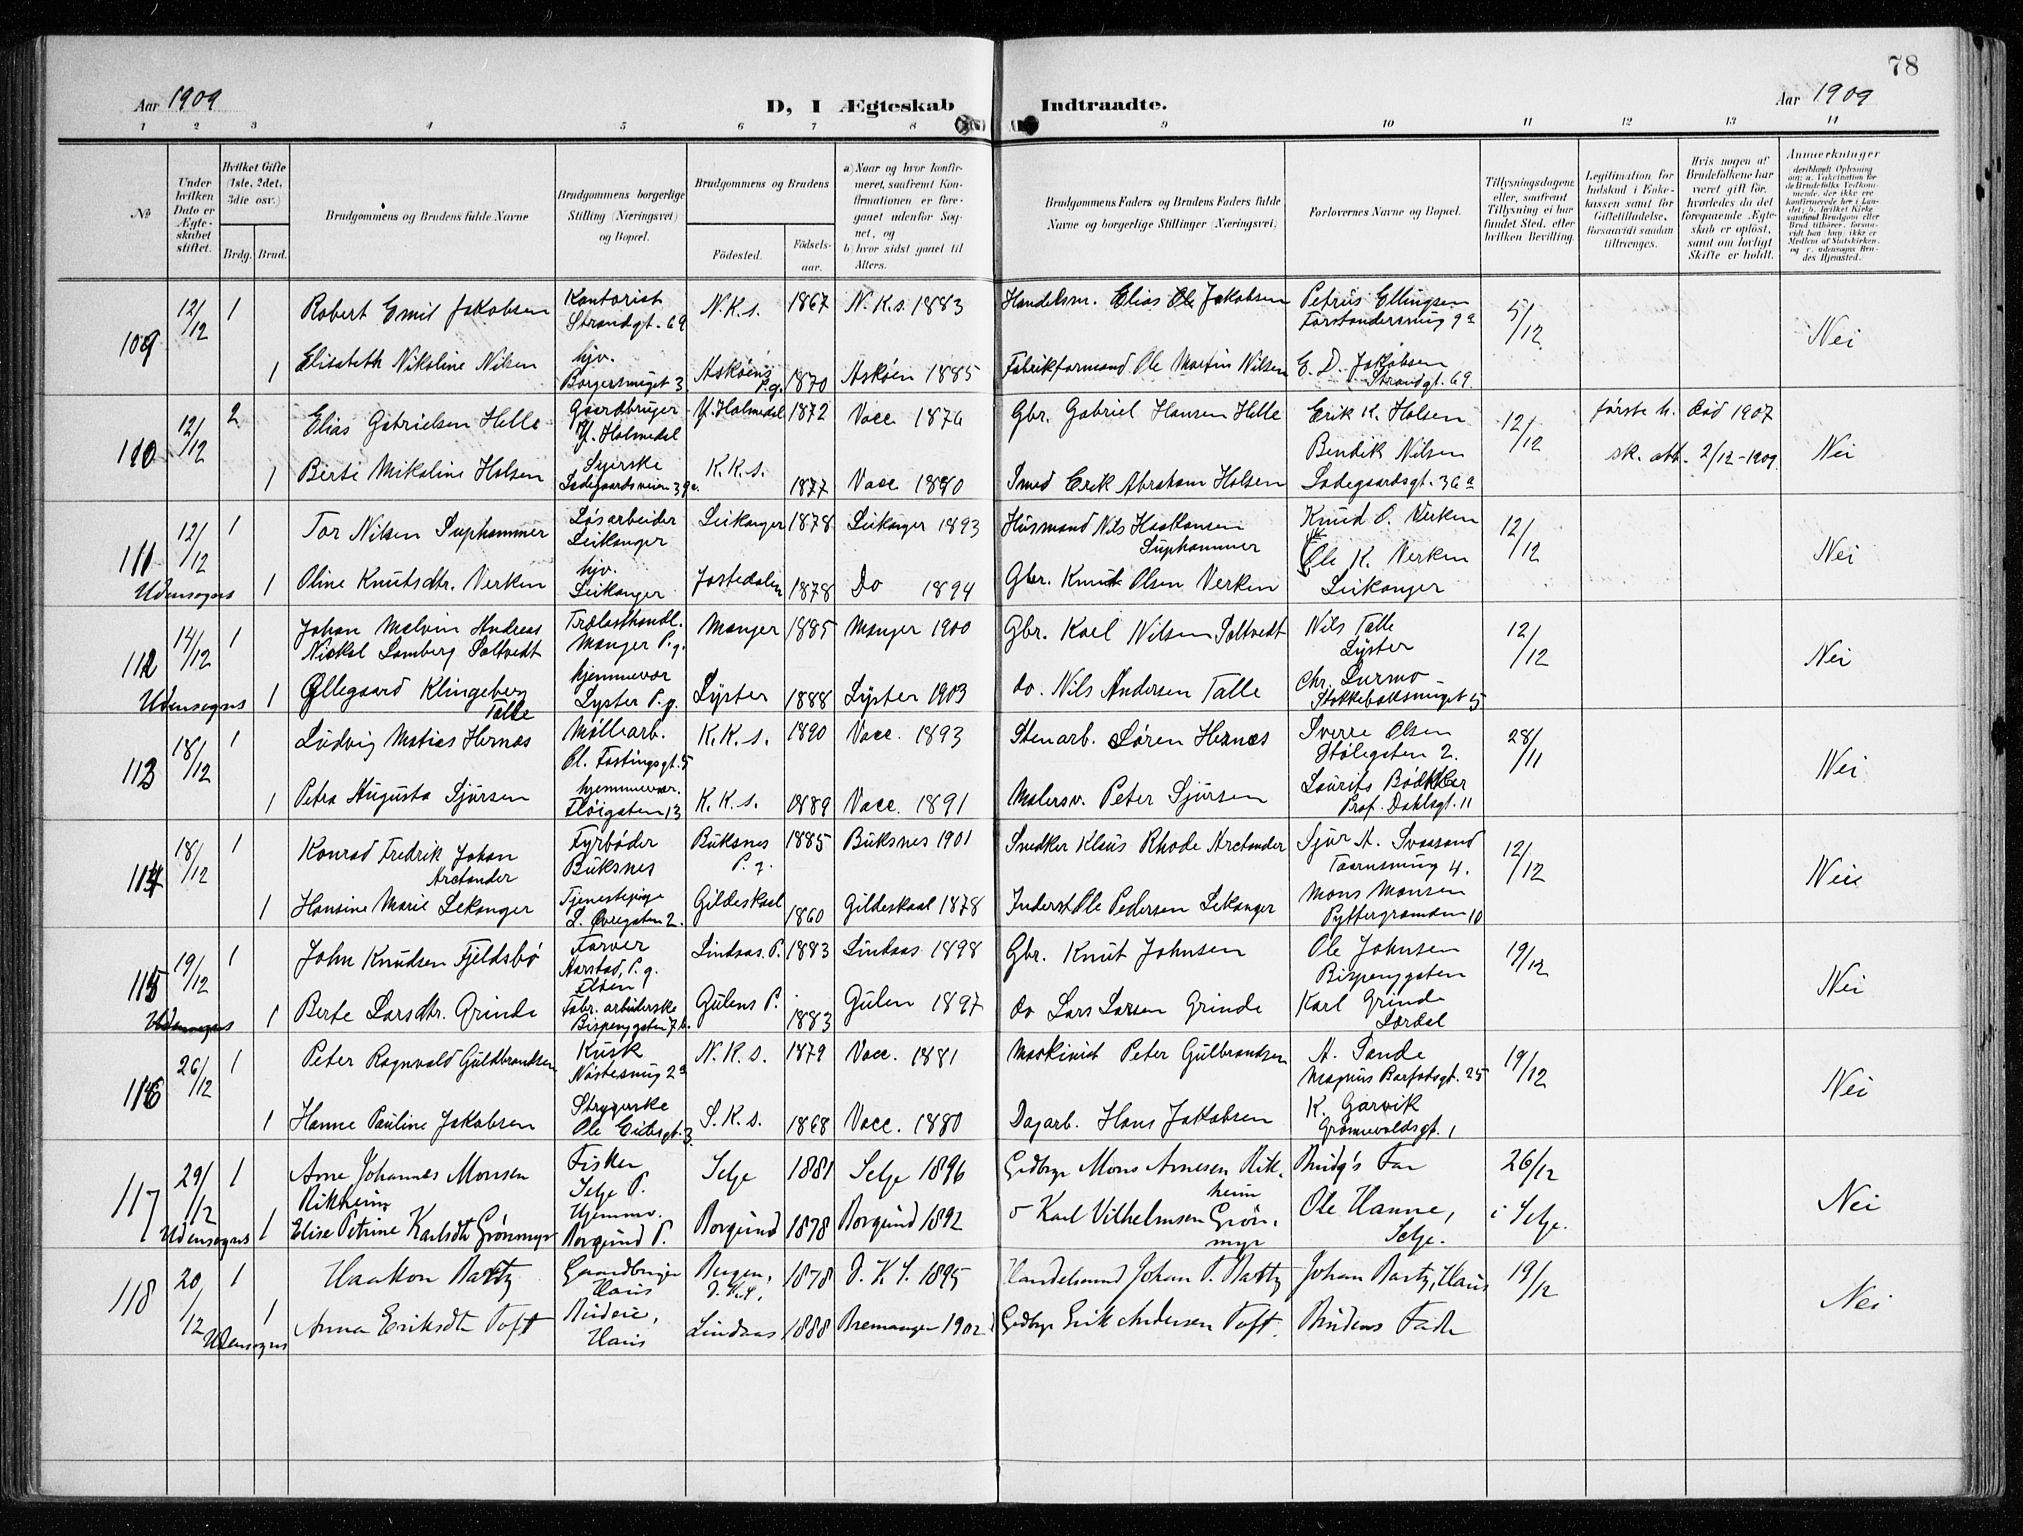 78
Aar 1909
D, I Ægteskab Indtraadte.
Aar 1909
1 2 3 4 5 6 7 8 9 10 11 12 13 14
No
Under hvilken Dato er Ægteskabet stiftet.
Hvilket Gifte (1ste, 2det, 3die osv.)
Brdg. Brud.
Brudgommens og Brudens fulde Navne
Brudgommens borgerlige Stilling (Næringsvei) og Bopæl.
Brudgommens og Brudens
Fødested.
Fødselsaar.
a) Naar og hvor konfirmeret, saafremt Konfirmationen er foregaaet udenfor Sognet, og
b) hvor sidst gaaet til Alters.
Brudgommens Faders og Brudens Faders fulde Navne og borgerlige Stillinger (Næringsvei)
Forlovernes Navne og Bopæl.
Tillysningsdagene eller, saafremt Tillysning ei har fundet Sted, efter hvilken Bevilling.
Legitimation for Indskud i Enkekassen samt for Giftetilladelse, forsaavidt saadan tiltrænges.
Hvis nogen af Brudefolkene har været gift før, hvorledes da det foregaaende Ægteskab er opløst, samt om lovligt Skifte er holdt.
Anmærkninger
109 12/12 1 Robert Emil Jakobsen Kontorist Strandgt. 69 N.K.s. 1867 N.K.s. 1883 Handelsm. Elias Ole Jakobsen Petrus Ellingsen Forstandersmug 9a 5/12 Nei
1 Elisabeth Nikoline Nilsen hjv. Borgersmuget 3 Askøens P.g. 1870 Askøen 1885 Fabrikformand Ole Martin Nilsen E. D. Jakobsen Strandgt. 69.
110 12/12 2 Elias Gabrielsen Helle Gaardbruger Y. Holmedal Y. Holmedal 1872 Vacc 1876 Gbr. Gabriel Hansen Helle Erik K. Holsen 12/12 første h. død 1907 Nei
1 Berte Mikoline Holsen Syerske Ladegaardsveien 39a. K.K.s. 1877 Vacc 1890 Smed Erik Abraham Holsen Bendik Nilsen Ladegaardsgt. 36a sk. att. 2/12-1909.
111 12/12 1 Tor Nilsen Suphammer Løsarbeider Leikanger Leikanger 1878 Leikanger 1893 Husmand Nils Haakonsen Suphammer Knud O. Verken 12/12 Nei
Udensogns 1 Oline Knutsdtr. Verken hjv. Leikanger Jostedalen 1878 Do 1894 Gbr. Knut Olsen Verken Ole K. Verken Leikanger
112 14/12 1 Johan Malvin Andreas Nickal Lamberg Soltvedt Trælasthandl. Manger P.g. Manger 1885 Manger 1900 Gbr. Karl Nilsen Soltvedt Nils Talle Lyster 12/12 Nei
Udensogns 1 Øllegaard Klingeberg Talle hjemmevær Lyster P.g. Lyster 1888 Lyster 1903 do. Nils Andersen Talle Chr. Lurmo Stokkebaksmuget 5
113 18/12 1 Ludvig Matias Hernæs Møllearb. Pl. Fastingsgt. 5 K.K.s. 1890 Vacc. 1893 Stenarb. Søren Hernæs Sverre Olsen Stølegaten 2. 28/11 Nei
1 Petra Augusta Sjursen hjemmevær. Fløigaten 13 K.K.s. 1889 Vacc. 1891 Malersv. Peter Sjursen Laurits Bødkker Prof. Dahlsgt. 11
114 18/12 1 Konrad Fredrik Johan Arctander Fyrbøder Buksnes Buksnes P.g. 1885 Buksnes 1901 Snedker Klaus Rhode Arctander Sjur A. Svaasand Taarnsmug 4. 12/12 Nei
1 Hansine Marie Lekanger Tjenestepige L. Øvregaten 2. Gildeskaal 1860 Gildeskaal 1878 Inderst Ole Pedersen Lekanger Mons Monsen Pyttergrænden 10
115 19/12 1 John Knudsen Fjeldsbø Farver Aarstad, P.g. Fløen Lindaas P. 1883 Lindaas 1898 Gbr. Knut Johnsen Ole Johnsen Bispenggaten 19/12 Nei
Udensogns 1 Berte Larsdtr. Grinde Fabr. arbiderske Bispenggaten 7b. Gulens P. 1883 Gulen 1897 do Lars Larsen Grinde Karl Grinde Lærdal
116 26/12 1 Peter Ragnvald Guldbrandsen Kusk Nøstesmug 2a N.K.s. 1879 Vacc. 1881 Maskinist Peter Gulbrandsen A. Sande Magnus Barfodsgt. 25 19/12 Nei
1 Hanne Pauline Jakobsen Strygerske Ole Eidesgt. 3 S.K.s. 1868 Vacc. 1880 Dagarb. Hans Jakobsen K. Garvik Grønnevoldsgt. 1
117 29/12 1 Arne Johannes Monsen Rikheim Fisker Selje P. Selje 1881 Selje 1896 Grdbrgr Mons Arnesen Rikheim Brudg's Far 26/12 Nei
Udensogns 1 Elise Petrine Karlsdtr Grønmyr Hjemmv. Borgund P. Borgund 1878 Borgund 1892 Karl Vilhelmsen Grønmyr Ole Hanne, Selje. i Selje.
118 20/12 1 Haakon Bartz Gaardbruger Haus Bergen, D.K.S. 1878 D.K.S. 1895 Handelsmand Johan P. Bartz Johan Bartz, Haus 19/12 Nei
Udensogns 1 Anna Eriksdtr Toft Budeie, Haus Lindaas 1888 Bremanger 1902 Grdbrgr Erik Andersen Toft. Brudens Fader